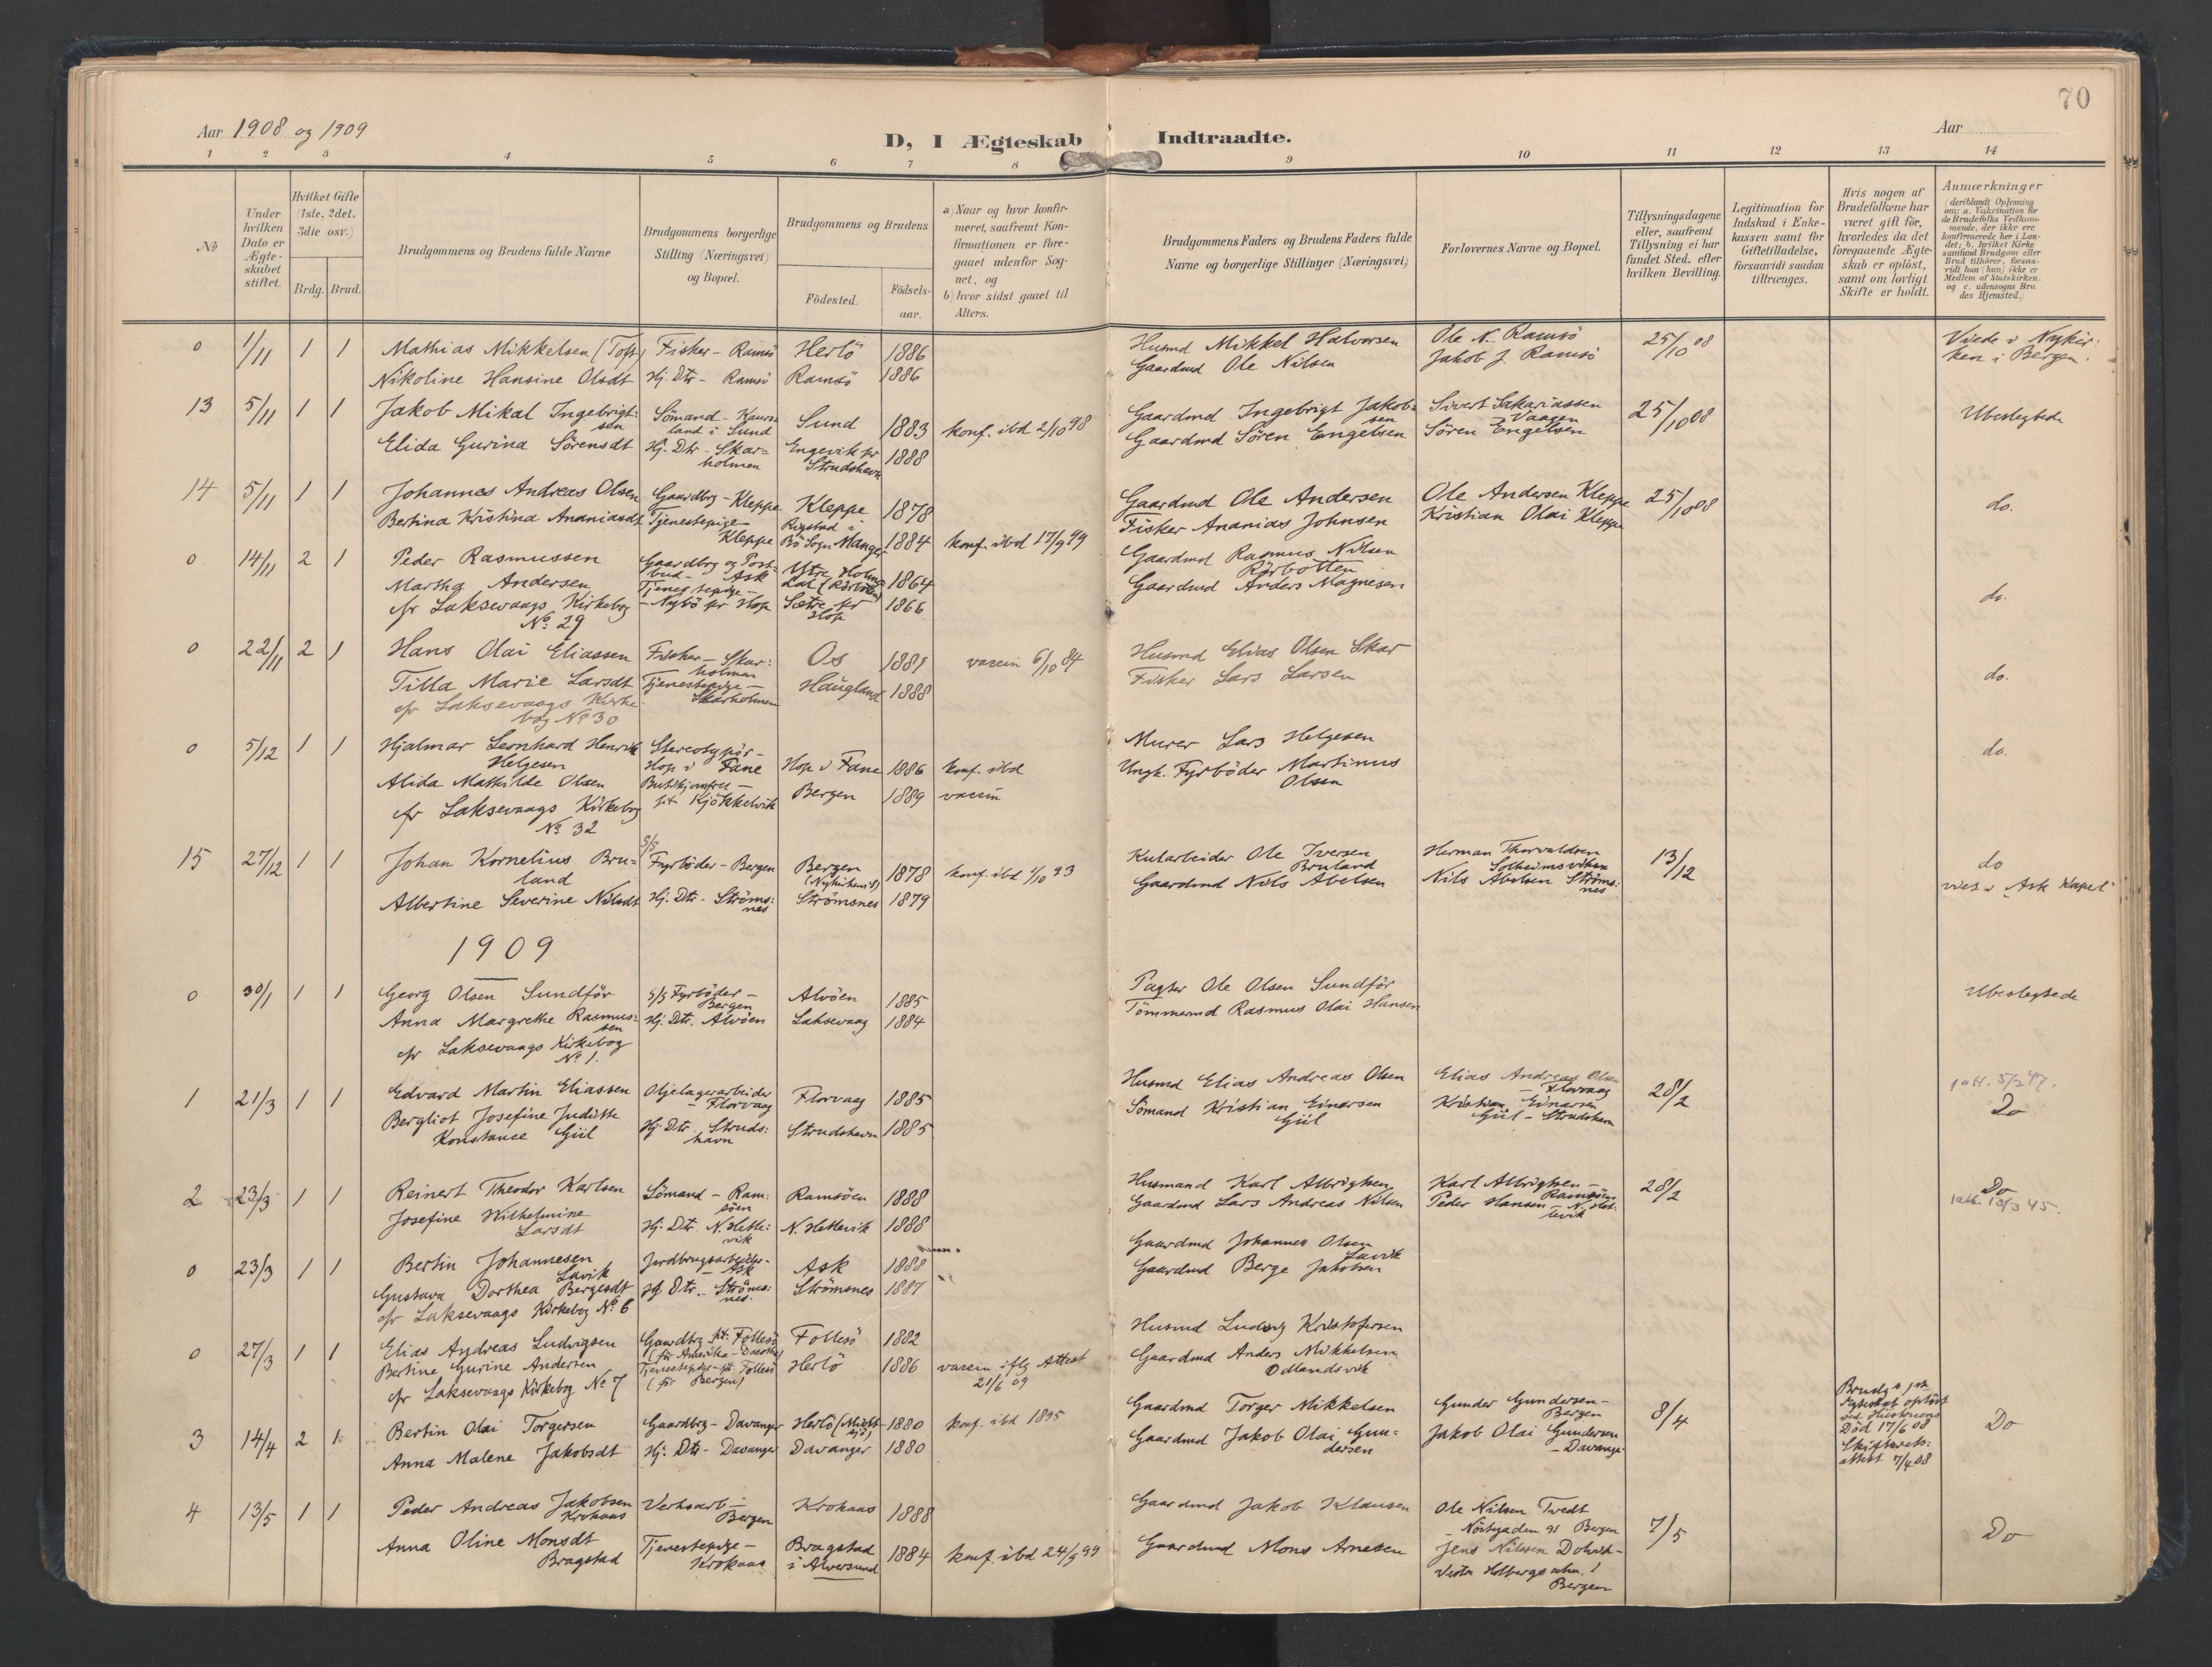 70
Aar 1908 og 1909
D, I Ægteskab Indtraadte.
Aar
1 2 3 4 5 6 7 8 9 10 11 12 13 14
No
Under hvilken Dato er Ægte-skabet stiftet.
Hvilket Gifte (1ste, 2det, 3die osv.)
Brdg. Brud.
Brudgommens og Brudens fulde Navne
Brudgommens borgerlige Stilling (Næringsvei) og Bopæl.
Brudgommens og Brudens
Födested.
Födsels-aar.
a) Naar og hvor konfir-meret, saafremt Kon-firmationen er fore-gaaet udenfor Sog-net, og
b) hvor sidst gaaet til Alters.
Brudgommens Faders og Brudens Faders fulde Navne og borgerlige Stillinger (Næringsvei)
Forlovernes Navne og Bopæl.
Tillysningsdagene eller, saafremt Tillysning ei har fundet Sted, efter hvilken Bevilling.
Legitimation for Indskud i Enke-kassen samt for Giftetilladelse, forsaavidt saadan tiltrænges.
Hvis nogen af Brudefolkene har været gift för, hvorledes da det foregaaende Ægte-skab er oplöst, samt om lovligt Skifte er holdt.
Anmærkninger (deriblandt Oplysning om: a. Vakcination for de Brudefolks Vedkom-mende, der ikke ere konfirmerede her i Lan-det; b. hvilket Kirke samfund Brudgom eller Brud tilhörer, forsaa-vidt han (hun) ikke er Medlem af Statskirken. og c. udensogns Bru des Hjemsted.)
0 1/11 1 1 Mathias Mikkelsen (Toft) Fisker - Ramsö Herlö 1886 Husmd Mikkel Halvorsen Ole N. Ramsö 25/10 08 Viede i Nykir:
Nikoline Hansine Olsdt Hj. Dtr - Ramsö Ramsö 1886 Gaardmd Ole Nilsen Jakob J. Ramsö ken i Bergen.
13 5/11 1 1 Jakob Mikal Ingebrigt: Sömand - Kaurs= Sund 1883 konf. ibd 2/10 98 Gaardmd Ingebrigt Jakob= Sivert Sakariassen 25/10 08 Ubeslegtede
sen land i Sund sen Vaagen
Elida Gurina Sörensdt Hj. Dtr - Skar= Engevik pr 1888 Gaardmd Sören Engelsen Sören Engelsen
holmen Strudshavn
14 5/11 1 1 Johannes Andreas Olsen Gaardbrg - Kleppe Kleppe 1878 Gaardmd Ole Andersen Ole Andersen Kleppe 25/10 08 do.
Bertina Kristina Ananiasdt Tjenestepige - Rigstad i 1884 konf. ibd 17/9 99 Fisker Ananias Johnsen Kristian Olai Kleppe
Kleppe Bö Sogn Manger
0 14/11 2 1 Peder Rasmussen Gaardbrg og Post= Ytre Holme 1864 Gaardmd Rasmus Nilsen
bud - Ask dal (Rörbotten) Rörbotten
Martha Andersen Tjenestepige - Sætre pr 1866 Gaardmd Anders Magnesen do.
cfr Laksevaags Kirkebog - Nybö pr Hop Hop
No 29
0 22/11 2 1 Hans Olai Eliassen Fisker - Skar: Os 1881 vaccin 6/10 84 Husmd Elias Olsen Skar do.
holmen
Tilla Marie Larsdt Tjenestepige - Haugland 1888 Fisker Lars Larsen
cfr Laksevaags Kirke Skarholmen
bog No 30
0 5/12 1 1 Hjalmar Leonhard Henrik Stereotypör - Hop i Fane 1886 konf. ibd Murer Lars Helgesen do.
Helgesen Hop i Fane
Alida Mathilde Olsen Butikjomfru - Bergen 1889 vaccin Ungk. Fyrböder Martinus
cfr Laksevaags Kirkebog pt Kjökkelvik Olsen
No 32
15 27/12 1 1 Johan Kornelius Bru= S/S Fyrböder - Bergen Bergen 1878 konf. ibd 1/10 93 Kularbeider Ole Iversen Herman Thorvaldsen 13/12 do
land (Nykirkens) Bruland Solheimsviken
Albertine Severine Nilsdt Hj. Dtr - Ströms: Strömsnes 1879 Gaardmd Nils Abelsen Nils Abelsen Ströms: viet i Ask Kapel
nes nes
1909
0 30/1 1 1 Georg Olsen Sundför S/S Fyrböder - Alvöen 1885 Pagter Ole Olsen Sundför Ubeslegtede
Bergen
Anna Margrethe Rasmus: Hj. Dtr. Alvöen Laksevaag 1884 Tömmermd Rasmus Olai Hansen
sen
cfr Laksevaags Kirkebog
No 1.
1 21/3 1 1 Edvard Martin Eliassen Oljelagerarbeider Florvaag 1885 Husmd Elias Andreas Olsen Elias Andreas Olsen 28/2 1 att. 5/2 47.
- Florvaag - Florvaag Do
Bergliot Josefine Juditte Hj. Dtr. Struds: Strudshavn 1885 Sömand Kristian Einarsen Kristian Einarsen
Konstance Giil havn Giil Giil - Strudshavn
2 23/3 1 1 Reinert Theodor Karlsen Sömand - Ram: Ramsöen 1888 Husmand Karl Albrigtsen Karl Albrigtsen - 28/2 Do
söen Ramsöen 1 att. 13/3 45.
Josefine Wilhelmine Hj. Dtr. N. Hette: N. Hettevik 1888 Gaardmd Lars Andreas Nilsen Peder Hansen - N. Het:
Larsdt vik tevik
0 23/3 1 1 Bertin Johannesen Jordbrugsarbeider - Ask 1888 Gaardmd Johannes Olsen
Lavik - Ask Lavik
Gustava Dorthea Bergesdt Hj. Dtr. - Ströms: Strömsnes 1887 Gaardmd Berge Jakobsen
nes.
cfr Laksevaags Kirkebog No 6
0 27/3 1 1 Elias Andreas Ludvigsen Gaardbrg pt. Follesö Follesö 1882 Husmd Ludvig Kristofersen
(för Amerika - Dacotha)
Bertine Gurine Andersen Tjenestepige - pt. Follesö Herlö 1886 vaccin iflg Attest Gaardmd Anders Mikkelsen
cfr Laksevaags Kirkebog No 7 (för Bergen) 21/6 09 Odlandsvik
3 14/4 2 1 Bertin Olai Torgersen Gaardbrg - Davanger Herlö 1880 konf. ibd 1895 Gaardmd Torger Mikkelsen Gunder Gundersen - Bergen 8/4 Brudgs Ægteskab oplöst ved Hustruens Död 17/6 08 Do
Anna Malene Jakobsdt Hj. Dtr - Davanger Davanger 1880 Gaardmd Jakob Olai Gun= Jakob Olai Gundersen Skifterets:
dersen - Davanger attest 7/4 08
4 13/5 1 1 Peder Andreas Jakobsen Verksarb - Krokaas 1888 Gaardmd Jakob Klausen Ole Nilsen Tvedt 7/5 Do
Krokaas Bergen - Nöstegaden 91 Bergen
Anna Oline Monsdt Tjenestepige - Bragstad 1884 konf. ibd 24/9 99 Gaardmd Mons Arnesen Jens Nilssen
Bragstad Krokaas i Alversund Holbergs alm. 1
Bergen